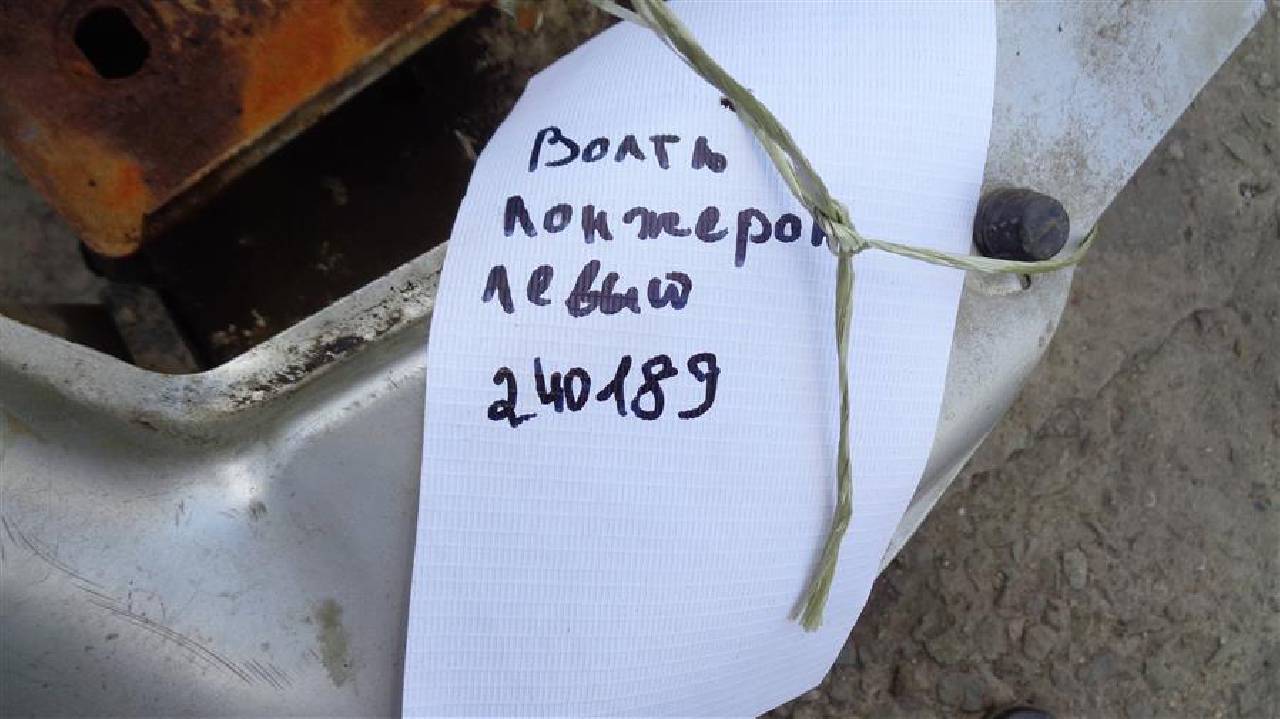 Волть
лонжерон
левый
240189